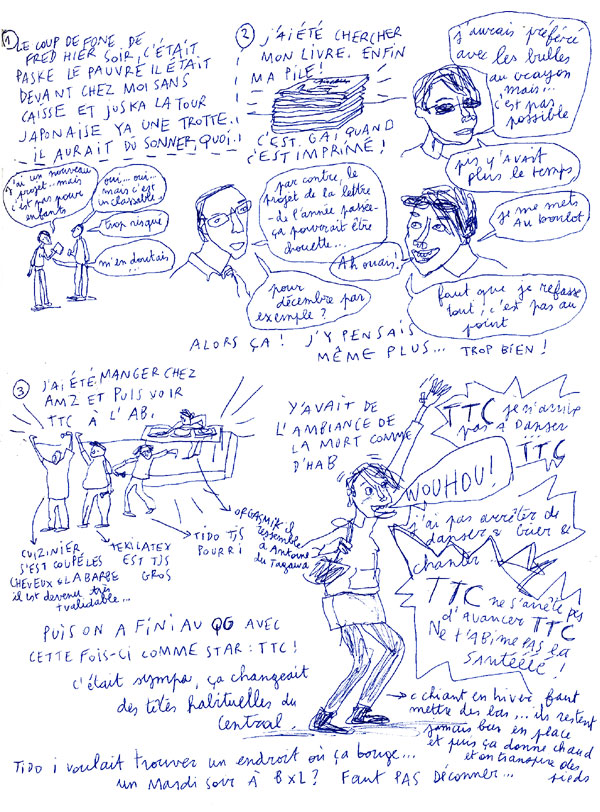 1
LE COUP DE FONE DE
FRED HIER SOIR, C'ÉTAIT
PASKE LE PAUVRE IL ÉTAIT
DEVANT CHEZ MOI SANS
CAISSE ET JUSKA LA TOUR
JAPONAISE YA UNE TROTTE..
IL AURAIT DU SONNER, QUOI..
J'ai un nouveau
projet... mais
c'est pas pour
enfants
oui... oui...
mais c'est
inclassable
trop risqué
m'en doutais...
2
J'AI ÉTÉ CHERCHER
MON LIVRE. ENFIN
MA PILE!
C'EST GAI QUAND
C'EST IMPRIMÉ!
j'aurais préféré
avec les bulles
au crayon
mais...
c'est pas
possible
pis y'avait
plus le temps
par contre, le
projet de la lettre
-de l'année passée-
ça pourrait être
chouette...
je me mets
au boulot
Ah ouais!
pour
décembre par
exemple?
faut que je refasse
tout; c'est pas au
point
ALORS ÇA! J'Y PENSAIS
MÊME PLUS... TROP BIEN!
3
J'AI ÉTÉ MANGER CHEZ
AM2 ET PUIS VOIR
TTC À L'AB.
CUIZINIER
S'EST COUPÉ LES
CHEVEUX & LA BARBE
il est devenu très
+ valuable...
TEKILATEX
EST TJS
GROS
TIDO TJS
POURRI
ORGASMIK il
ressemble
à Antoine
du Tagawa
Y'AVAIT DE
L'AMBIANCE DE
LA MORT COMME
D'HAB
TTC je n'arrive
pas à danser
TTC
WOUHOU!
j'ai pas arrêter de
danser & crier &
chanter
TTC
ne s'arrête pas
d'avancer TTC
Ne t'abime pas la
santéééé!
PUIS ON A FINI AU QG AVEC
CETTE FOIS-CI COMME STAR: TTC!
c'était sympa, ça changeait
des têtes habituelles du
Central.
c chiant en hiver faut
mettre des bas... ils restent
jamais bien en place
et puis ça donne chaud
et on transpire des
pieds
TIDO i voulait trouver un endroit où ça bouge...
un Mardi soir à BXL? FAUT PAS DÉCONNER...